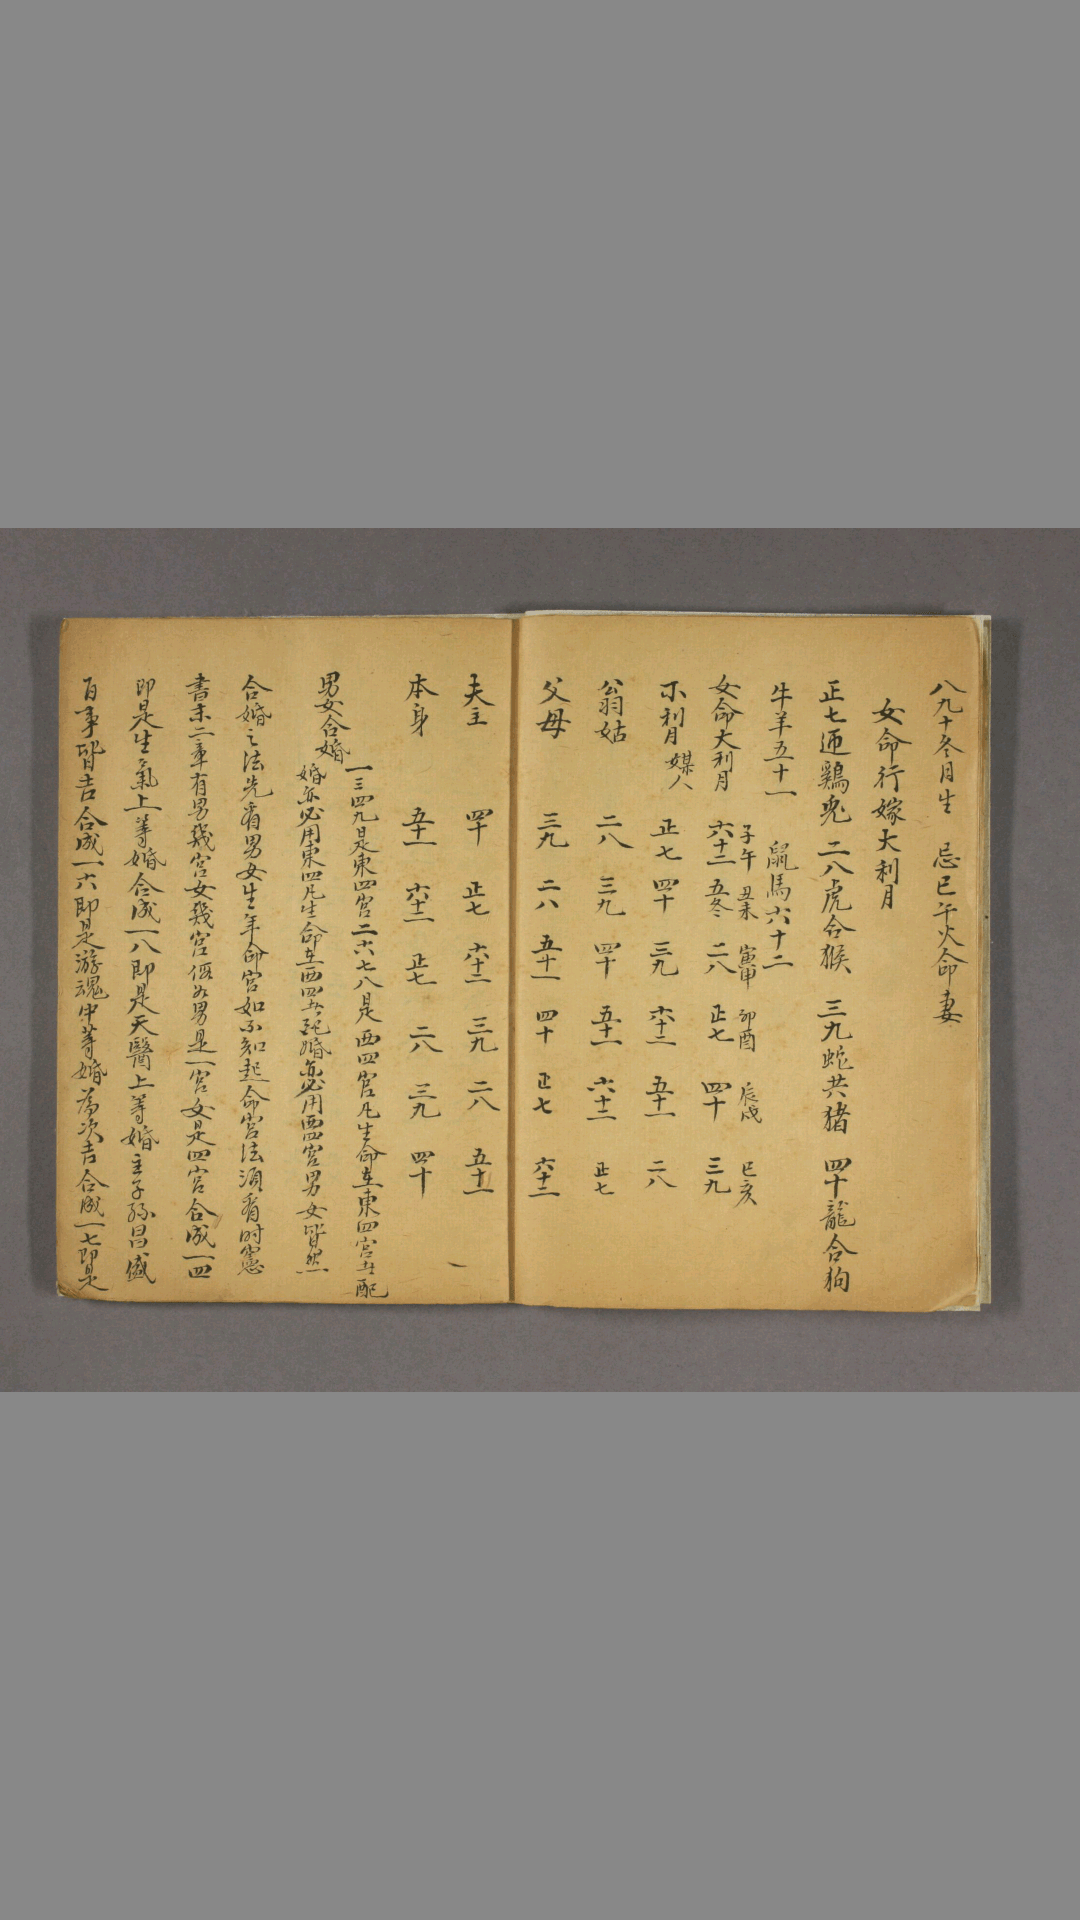 八九十冬月生　忌巳午火命妻
女命行嫁大利月
正七迎鷄兎　二八虎合猴　三九蛇共猪　四十龍合狗
牛羊五十一　鼠馬六十二
子午　丑未　寅申　卯酉　辰戌　巳亥
女命大利月　六十二　五冬　二八　正七　四十　三九
不利月　媒人　正七　四十　三九　六十二　五十一　二八
翁姑　二八　三九　四十　五十一　六十二　正七
父母　三九　二八　五十一　四十　正七　六十二
夫主　四十　正七　六十二　三九　二八　五十一
本身　五十一　六十二　正七　二八　三九　四十
男女合婚
一三四九是東四宮二六七八是西四宮凡生命在東四宮者配
婚亦必用東四凡生命在西四者配婚亦必用西四宮男女皆然
合婚之法先看男女生年命宮如不知起命宮法須看时憲
書末二章有男幾宮女幾宮假如男是一宮女是四宮合成一四
即是生氣上等婚合成一八即是天醫上等婚主子孫昌盛
百事皆吉合成一六即是游魂中等婚為次吉合成一七即是